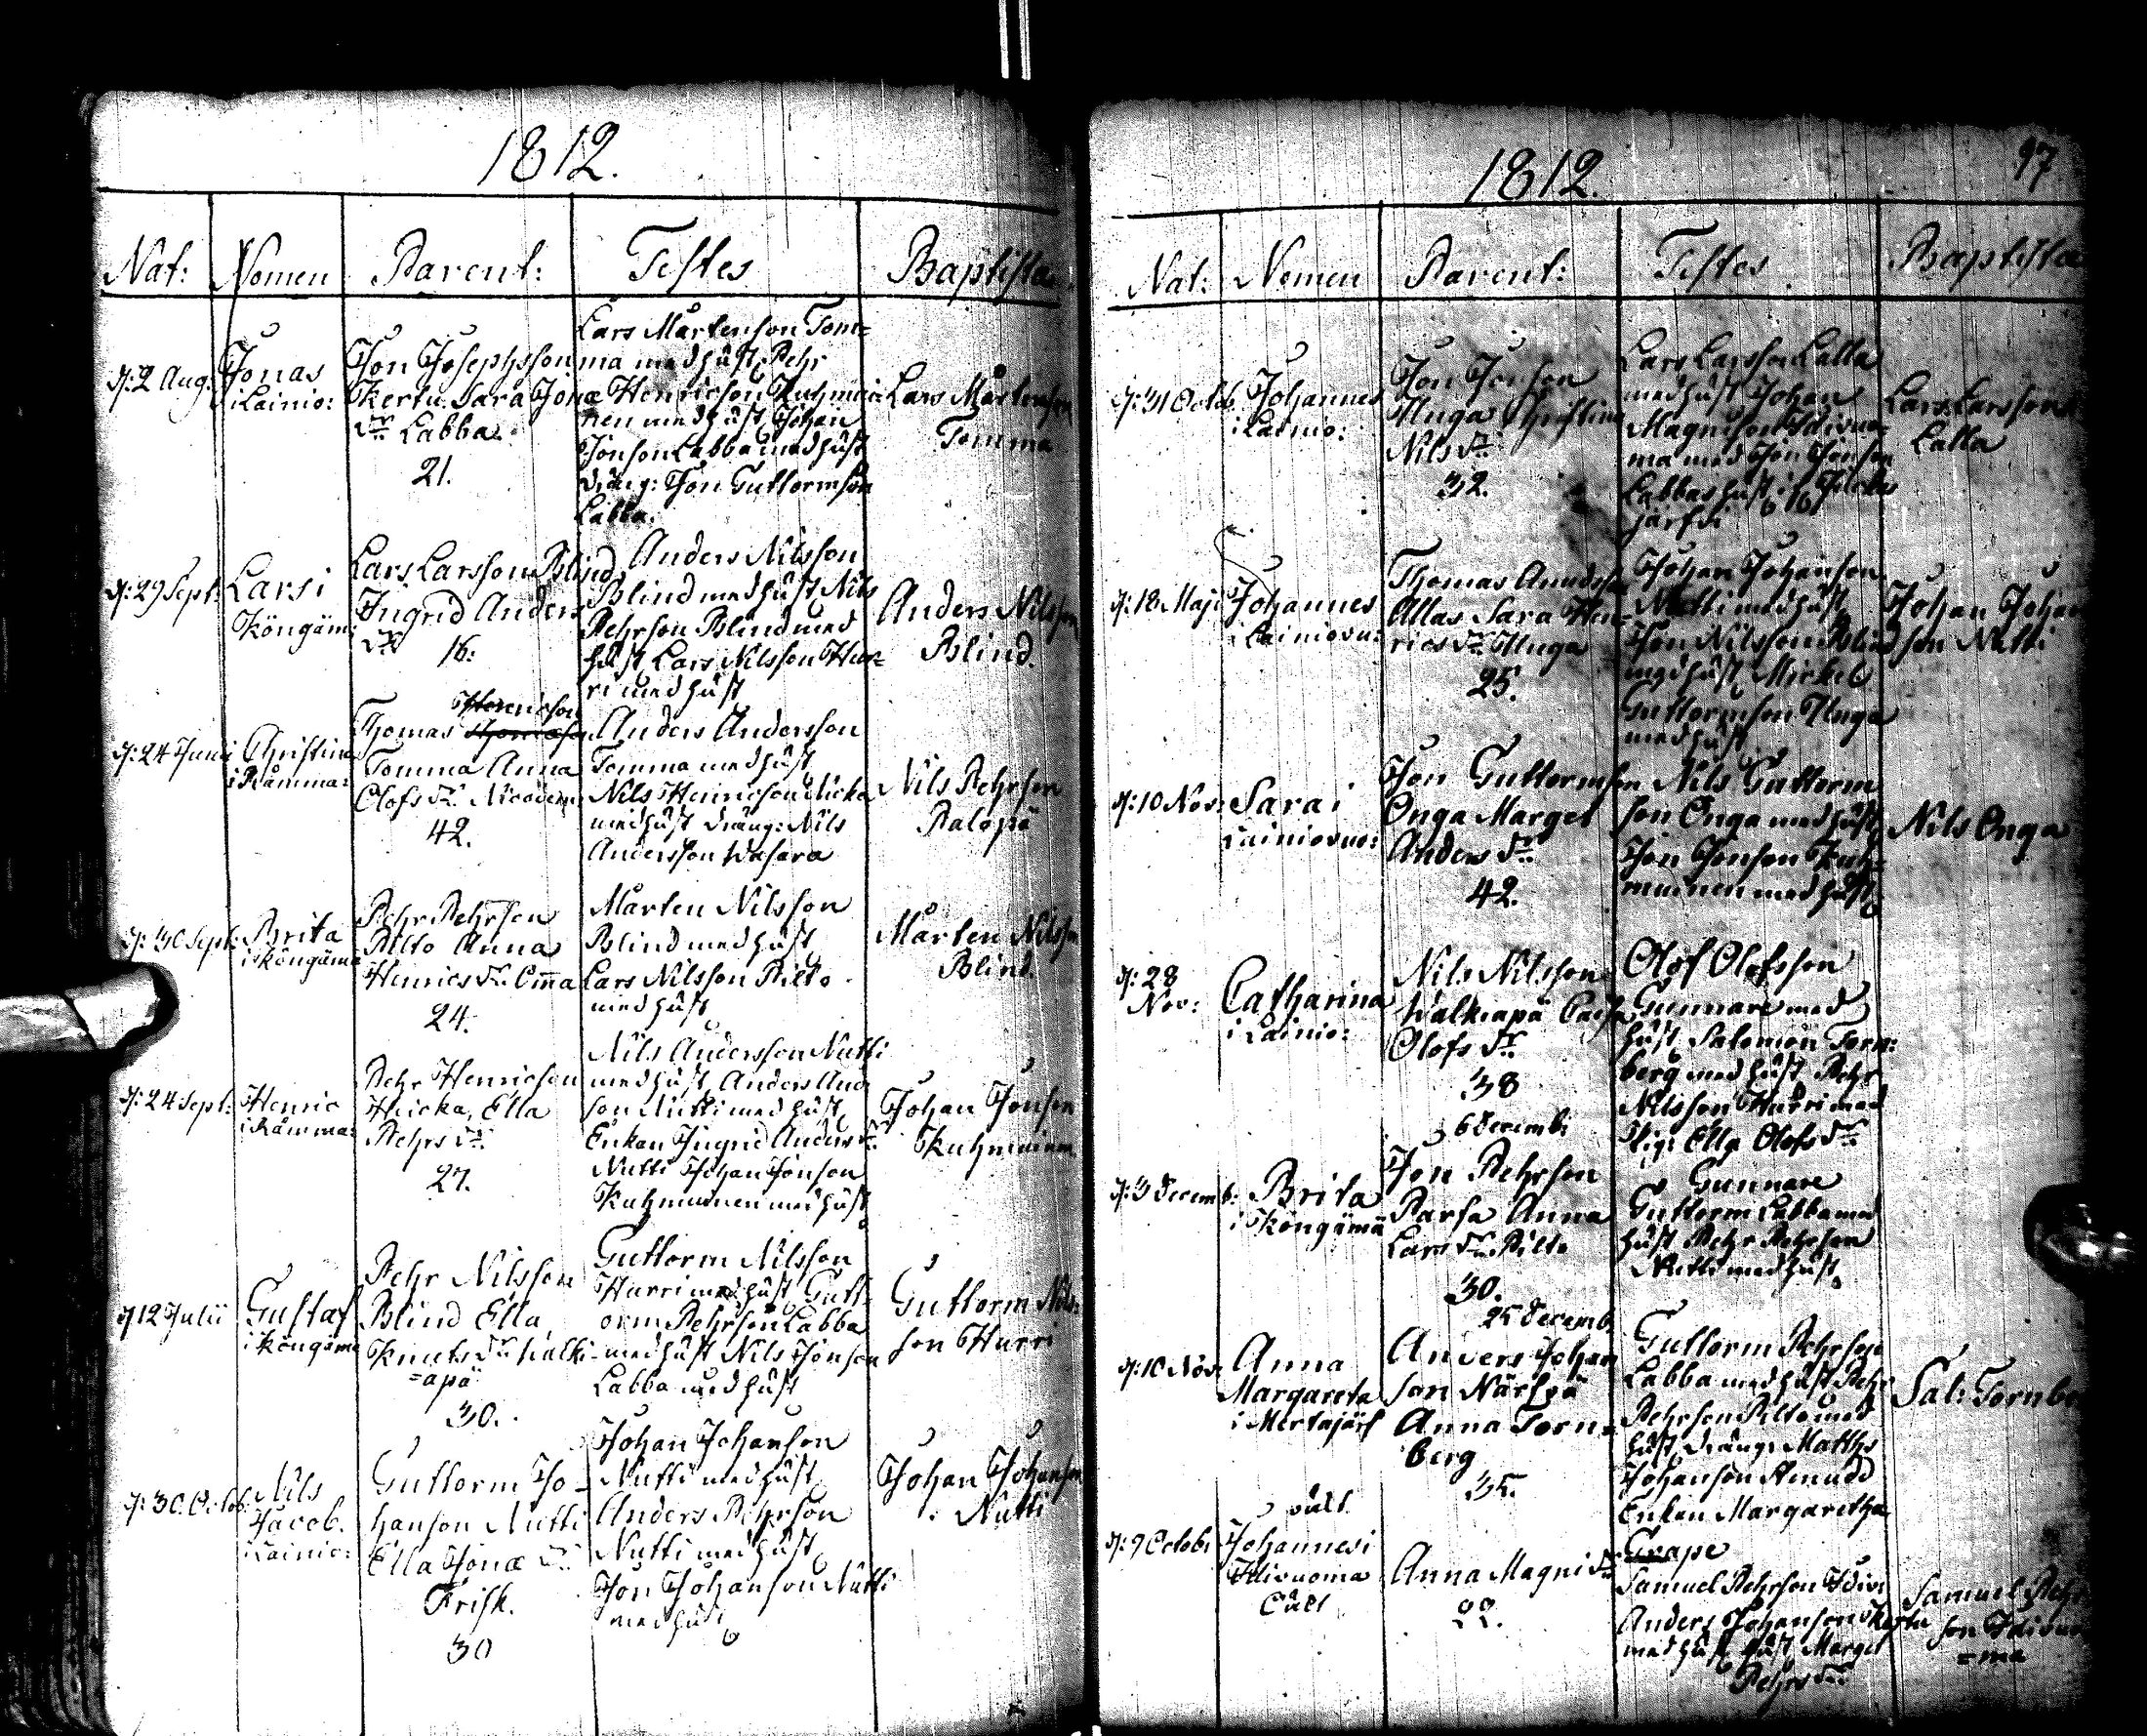 1812.
Nat: Nomen Parent: Testes Baptista
d: 2 Aug: Jonas
i Lainio:
Jon Josephsson
Kertu. Sara Jonæ
dr Labba.
21.
Lars Mårtenson Tom=
ma med hust, Pehr
Henricson Kuhmui=
nen med hust, Johan
Jonson Labba med hust
dräng: Jon Guttormson
Labba.
Lars Mårtenson
Tomma
d: 29 Sept: Lars i
Köngäm:
Lars Larsson Blind,
Ingrid Anders
dr 16:
Anders Nilsson
Blind med hust Nils
Pehrson Blind med
hust Lars Nilsson Hur=
ri med hust
Anders Nilsson
Blind.
d: 24 Junii Christina
i Råmma:
Henricson
Thomas
Tomma Anna
Olofs dr
42.
Anders Andersson
Tomma med hust
Nils Henricson
med hust dräng: Nils
Andersson Wasara
Nils Pehrson
Palopä
d: 30 Sept: Brita
i Köngämä
Pehr Pehrson
Pilto Anna
Henrics dr Omma
24.
Mårten Nilsson
Blind med hust
Lars Nilsson Pilto
med hust
Mårten Nilsson
Blind.
d: 24 Sept: Henric
i Råmma:
Pehr Henricson
Ella
Pehrs dr
27.
Nils Andersson Nutti
med hust, Anders And
son Nutti med hust
Enkan Ingrid Anders dr
Nutti Johan Jonson
Kuhmuinen med hust
Johan Jonson
Kuhmuinen
d 12 Julii Gustaf
i Köngämä
Pehr Nilsson
Blind Ella
Knuts dr Walki
=apä
30.
Guttorm Nilsson
Hurri med hust Gutt=
orm Pehrson Labba
med hust Nils Jonson
Labba med hust
Guttorm Nils=
son Hurri
d: 30. Octob: Nils
Jacob.
i Lainio:
Guttorm Jo=
hanson Nutti
Ella Jonæ dr
Frisk.
30
Johan Johanson
Nutti med hust
Anders Pehrson
Nutti med hust
Jon Johanson Nutti
med hust
Johan Johanson
Nutti
97
1812.
Nat: Nomen Parent: Testes Baptista
d: 31 Octob Johannes
i Lainio:
Jon Jonson
Unga Christina
Nils dr
32.
Lars Larsson Lalla
med hust Johan
Magnison Idivuo=
ma med Jon Jonson
Labbas hust
järfvi
Lars Larsson
Lalla
d: 18 Maji Johannes
i Lainiovu:
Thomas
Allas Sara Hen=
rics dr Unga
25.
Johan Johanson
Nutti med hust
Jon Nilsson Blind
med hust, Mickel
Guttormson Unga
med hust
Johan Johan
son Nutti
d: 10 Nov: Sara i
Lainiovuo:
Jon Guttormson
Onga Marget
Anders dr
42.
Nils Guttorm
son Onga med hust
Jon Jonson Kuh=
muinen med hust
Nils Onga
d: 28
Nov: Catharina
i Lainio:
Nils Nilsson
Walkiapä Caisa
Olofs dr
38
Olof Olofsson
Gunnare med
hust Salomon Torn:
berg med hust Pehr
Nilsson Hurri med
Pig: Ella Olofs dr
Gunnare
6 Decemb:
d: 3 Decemb: Brita
i Köngämä
Jon Pehrson
Parfa Anna
Lars dr Pilto
30.
Guttorm Labba med
hust Pehr Pehrson
Nutti med hust
25 Decemb.
d: 10 Nov: Anna
Margareta
i Mertajärf
Anders Johan
son Närfvä
Anna Torn=
berg
35.
Guttorm Pehrson
Labba med hust Pehr
Pehrson Pilto med
hust, dräng: Matths
Johanson Amudd
Enkan Margaretha
Grape
Sal: Tornber
d: 9 Octob: oäkt
Johannes i
Idivuoma
Oäkt
Anna Magni dr
22.
Samuel Pehrson Idiv:
Anders Johanson Kertu
med hust, hust Marget
Pehrs dr
Samuel Pehr
son Idivuo
=ma